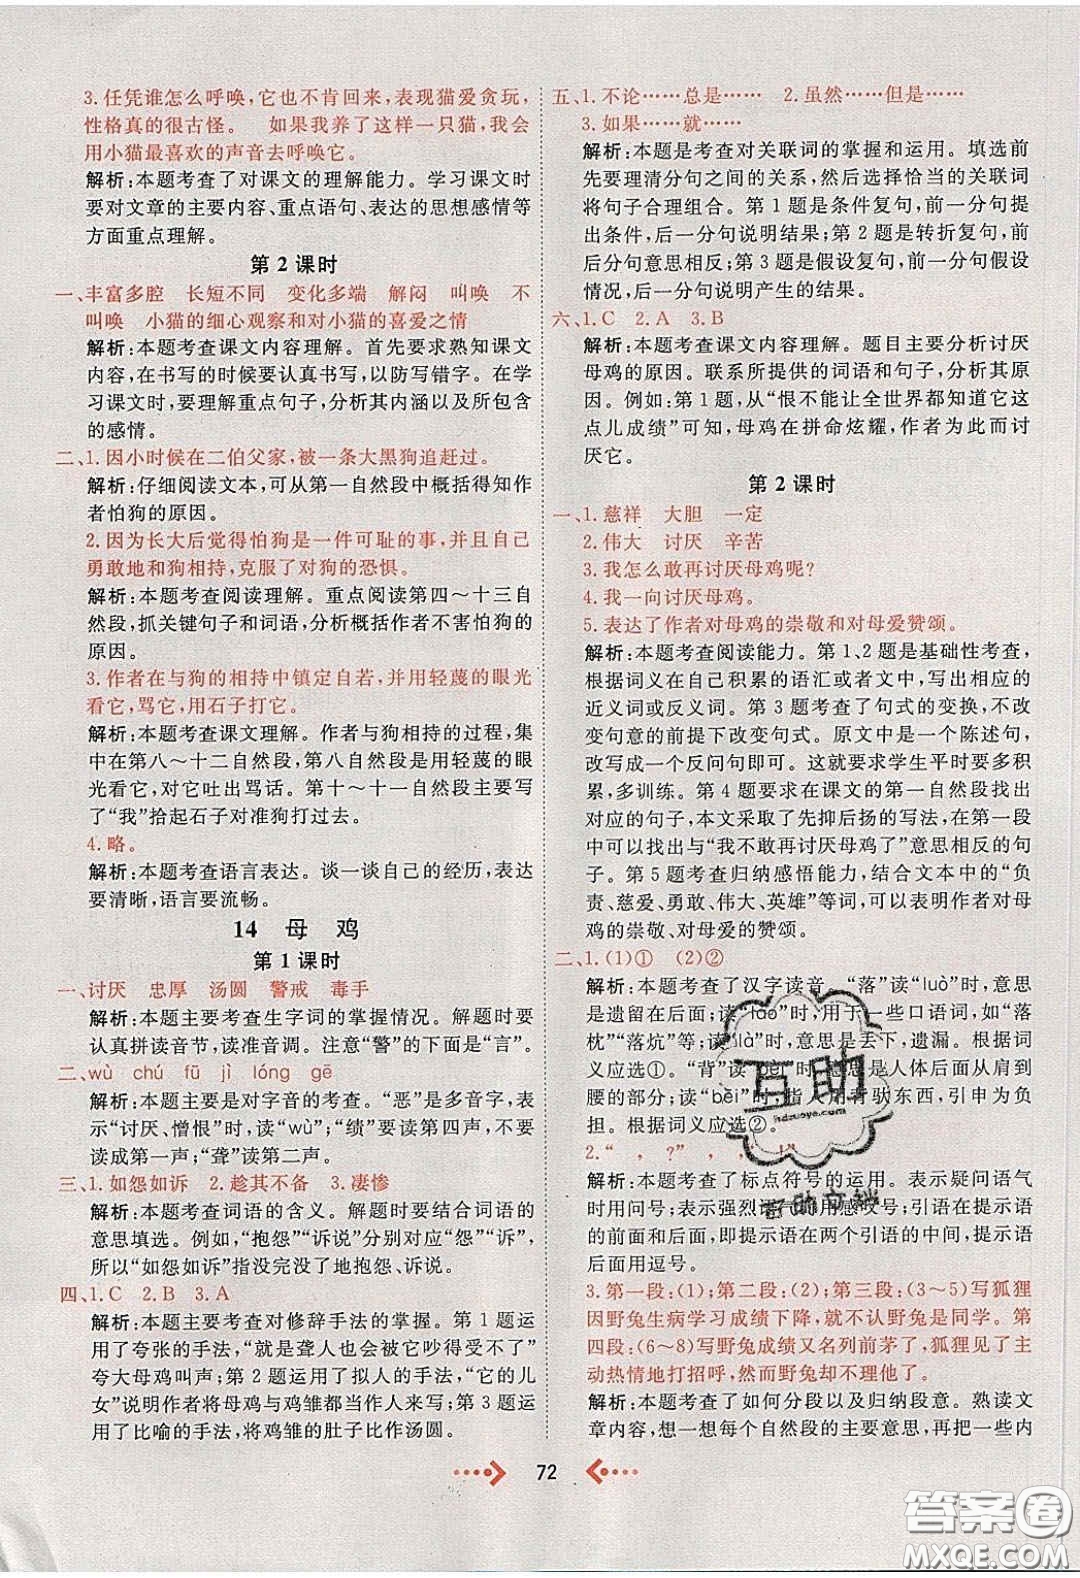 3. 任凭谁怎么呼唤，它也不肯回来，表现猫爱贪玩，
性格真的很古怪。 如果我养了这样一只猫，我会
用小猫最喜欢的声音去呼唤它。
解析：本题考查了对课文的理解能力。学习课文时
要对文章的主要内容、重点语句、表达的思想感情等
方面重点理解。
第 2 课时
一、丰富多腔 长短不同 变化多端 解闷 叫唤 不
叫唤 小猫的细心观察和对小猫的喜爱之情
解析：本题考查课文内容理解。首先要求熟知课文
内容，在书写的时候要认真书写，以防写错字。在学
习课文时，要理解重点句子，分析其内涵以及所蕴含
的感情。
二、1. 因小时候在二伯父家，被一条大黑狗追赶过。
解析：仔细阅读文本，可从第一自然段中概括得知作
者怕狗的原因。
2. 因为长大后觉得怕狗是一件可耻的事，并且自己
勇敢地和狗相持，克服了对狗的恐惧。
解析：本题考查阅读理解。重点阅读第四～十三自
然段，抓关键句子和词语，分析概括作者不害怕狗的
原因。
3. 作者在与狗的相持中镇定自若，并用轻蔑的眼光
看它，骂它，用石子打它。
解析：本题考查课文理解。作者与狗相持的过程，集
中在第八～十二自然段，第八自然段是用轻蔑的眼
光看它，对它吐出骂话。第十～十一自然段主要写
了“我”拾起石子对准狗打过去。
4. 略。
解析：本题考查语言表达。谈一谈自己的经历，表达
要清晰，语言要流畅。
14 母 鸡
第 1 课时
一、讨厌 忠厚 汤圆 警戒 毒手
解析：本题主要考查生字词的掌握情况。解题时要
认真拼读音节，读准音调。注意“警”的下面是“言”。
二、wù chú fū jì lóng gē
解析：本题主要是对字音的考查。“恶”是多音字，表
示“讨厌、憎恨”时，读“wù”；“绩”读第四声，不要误
读成第一声；“聋”读第二声。
三、1. 如怨如诉 2. 趁其不备 3. 凄惨
解析：本题考查词语的含义。解题时要结合词语的
意思填选。例如，“抱怨”“诉说”分别对应“怨”“诉”，
所以“如怨如诉”指没完没了地抱怨、诉说。
四、1. C 2. B 3. A
解析：本题主要考查对修辞手法的掌握。第 1 题运
用了夸张的手法，“就是聋人也会要忍受不了”
夸大母鸡叫声；第 2 题运用了拟人的手法，“它的儿
女”说明作者将母鸡与鸡雏都当作人来写；第 3 题运
用了比喻的手法，将鸡雏的肚子比作汤圆。
五、1. 不论……总是…… 2. 虽然……但是……
3. 如果……就……
解析：本题是考查对关联词的掌握和运用。填选前
先要理清分句之间的关系，然后选择恰当的关联词
将句子合理组合。第 1 题是条件复句，前一分句提
出条件，后一分句说明结果；第 2 题是转折复句，前
后分句意思相反；第 3 题是假设复句，前一分句假设
情况，后一分句说明产生的结果。
六、1. C 2. A 3. B
解析：本题考查课文内容理解。题目主要分析讨厌
母鸡的原因。联系所提供的词语和句子，分析其原
因。例如：第 1 题，从“恨不能让全世界都知道它这
点儿成绩”可知，母鸡在拼命炫耀，作者为此而讨
厌它。
第 2 课时
一、1. 慈祥 大胆 一定
2. 伟大 讨厌 辛苦
3. 我怎么敢再讨厌母鸡呢？
4. 我一向讨厌母鸡。
5. 表达了作者对母鸡的崇敬和对母爱赞颂。
解析：本题考查阅读能力。第 1、2题是基础性考查，
根据词义在自己积累的语汇或者文中，写出相应的
近义词或反义词。第 3 题考查了句式的变换，不改
变句意的前提下改变句式。原文中是一个陈述句，
改写成一个反问句即可。这就要求学生平时要多积
累，多训练。第 4 题要在课文的第一自然段找出
对应的句子，本文采取了先抑后扬的写法，在第一段
中可以找出与“我不敢再讨厌母鸡了”意思相反的句
子。第 5 题考查归纳感悟能力，结合文本中的“负
责、慈爱、勇敢、伟大、英雄”等词，可以表明作者对母
鸡的崇敬、对母爱的赞颂。
二、1. (1)① (2)②
解析：本题考查了汉字读音。“落”读“luò”时，意思
是遗留在后面；读“lào”时，用于一些口语词，如“落
枕”“落炕”等；读“là”时，意思是丢下，遗漏。根据词
义应选①。“背”读“bèi”时，意思是人体后面从肩到
腰的部分；读“bēi”时，指人用背驮东西，引申为负
担。根据词义应选②。
2. “ ， ？” ， “ ， ！”
解析：本题考查了标点符号的运用。表示疑问语气
时用问号；表示感叹语气时用感叹号；引语在提示语
的前面和后面，即提示语在两个引语的中间，提示语
后面用逗号。
3. 第一段：(1)；第二段：(2)；第三段：(3～5)写狐狸
因野兔生病学习成绩下降，就不认野兔是同学。第
四段：(6～8)写野兔成绩又名列前茅了，狐狸见了主
动热情地打招呼，然而野兔却不理他。
解析：本题考查了如何分段以及归纳段意。熟读文
章内容，想一想每个自然段的主要意思，再把一些内
72
互助
hdzuoye.com
答案圈
MXQE.COM